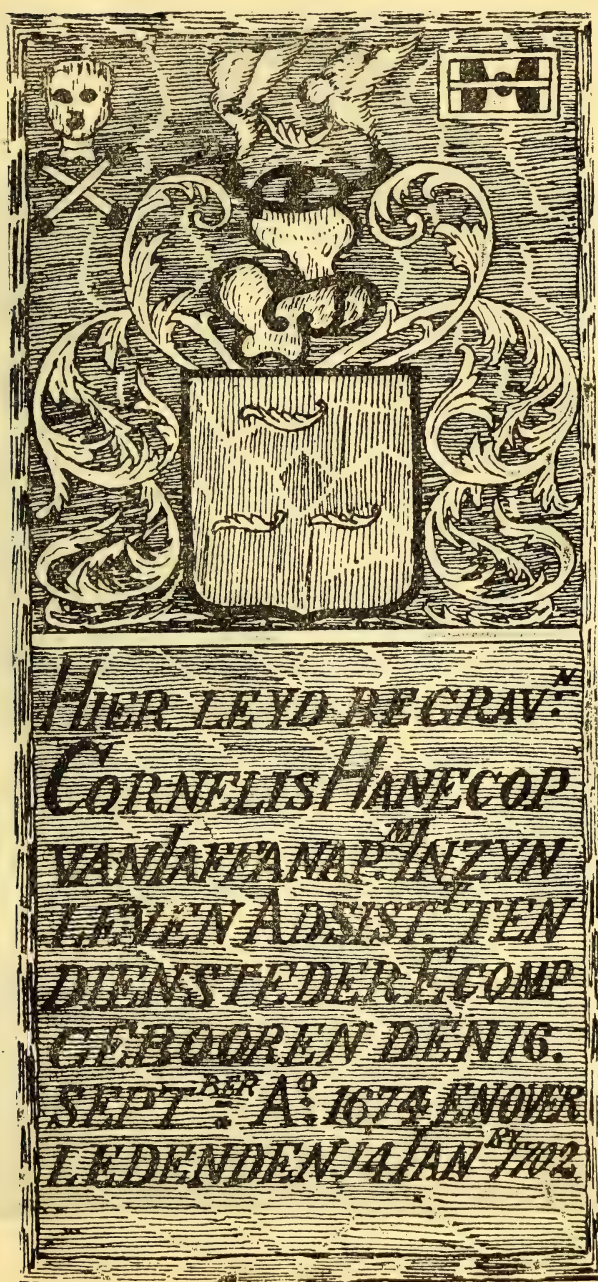 HIER LEYD BEGRAV:N
CORNELIS HANECOP
VAN IAFFANAP:M IN ZYN
LEVEN ADSIST:T TEN
DIENSTE DER E COMP
GEBOOREN DEN 16.
SEPT:BER A:O 1674 EN OVER
LEDEN DEN 14 IAN:RY 1702